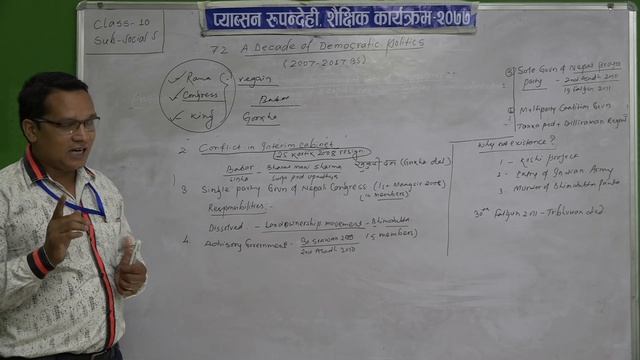 प्याब्सन रूपन्देही, शैक्षिक कार्यक्रम-२०७७
Class-10
Sub-Social S
7.2 A Decade of Democratic Politics
(2007-2017 BS)
Rana
Congress
King
regain
Babar
Gorkha
2 Conflict in Interim cabinet
25 kartik 2008 resign
Babar
Singha
Bharat mani sharma
Surya prd upadhyay
(Gorkha dal)
3 Single party Govn of Nepali Congress (1st Mangsir 2008)
(14 members)
Responsibilities:-
Dissolved - Landownership movement - Bhimdutta
4. Advisory Government - (5 members)
③ Sole Govn of Nepal Praja
party - 2nd Asadh 2010
19 Falgun 2011
Multiparty Coalition Govn
Tanka prd + Dilliraman Regmi
Why not existence?
1 - Koshi project
2 - Entry of Indian Army
3. Murder of Bhimdutta Panta
30th Falgun 2011 - Tribhuvan died